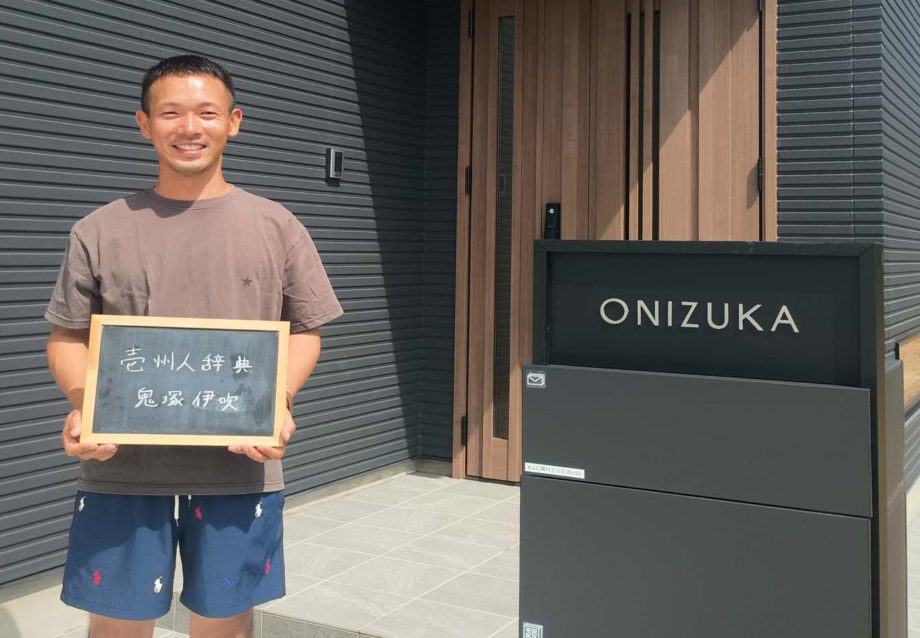 壱州人辞典
鬼塚伊吹
ONIZUKA